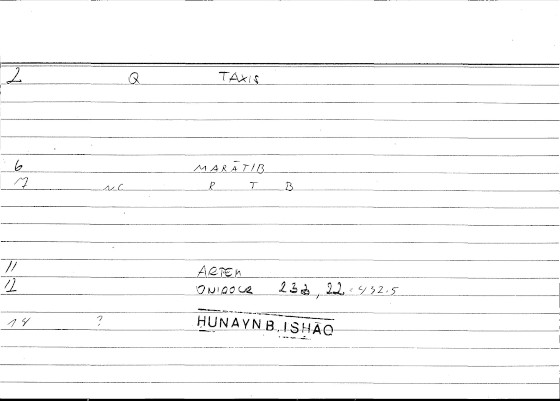 2 Q TAXIS
6 MARĀTIB
17 NC R T B
11 ARTEM
12 ONIROCR 233, 22 = 432.5
14 ? HUNAYN B. ISHĀQ